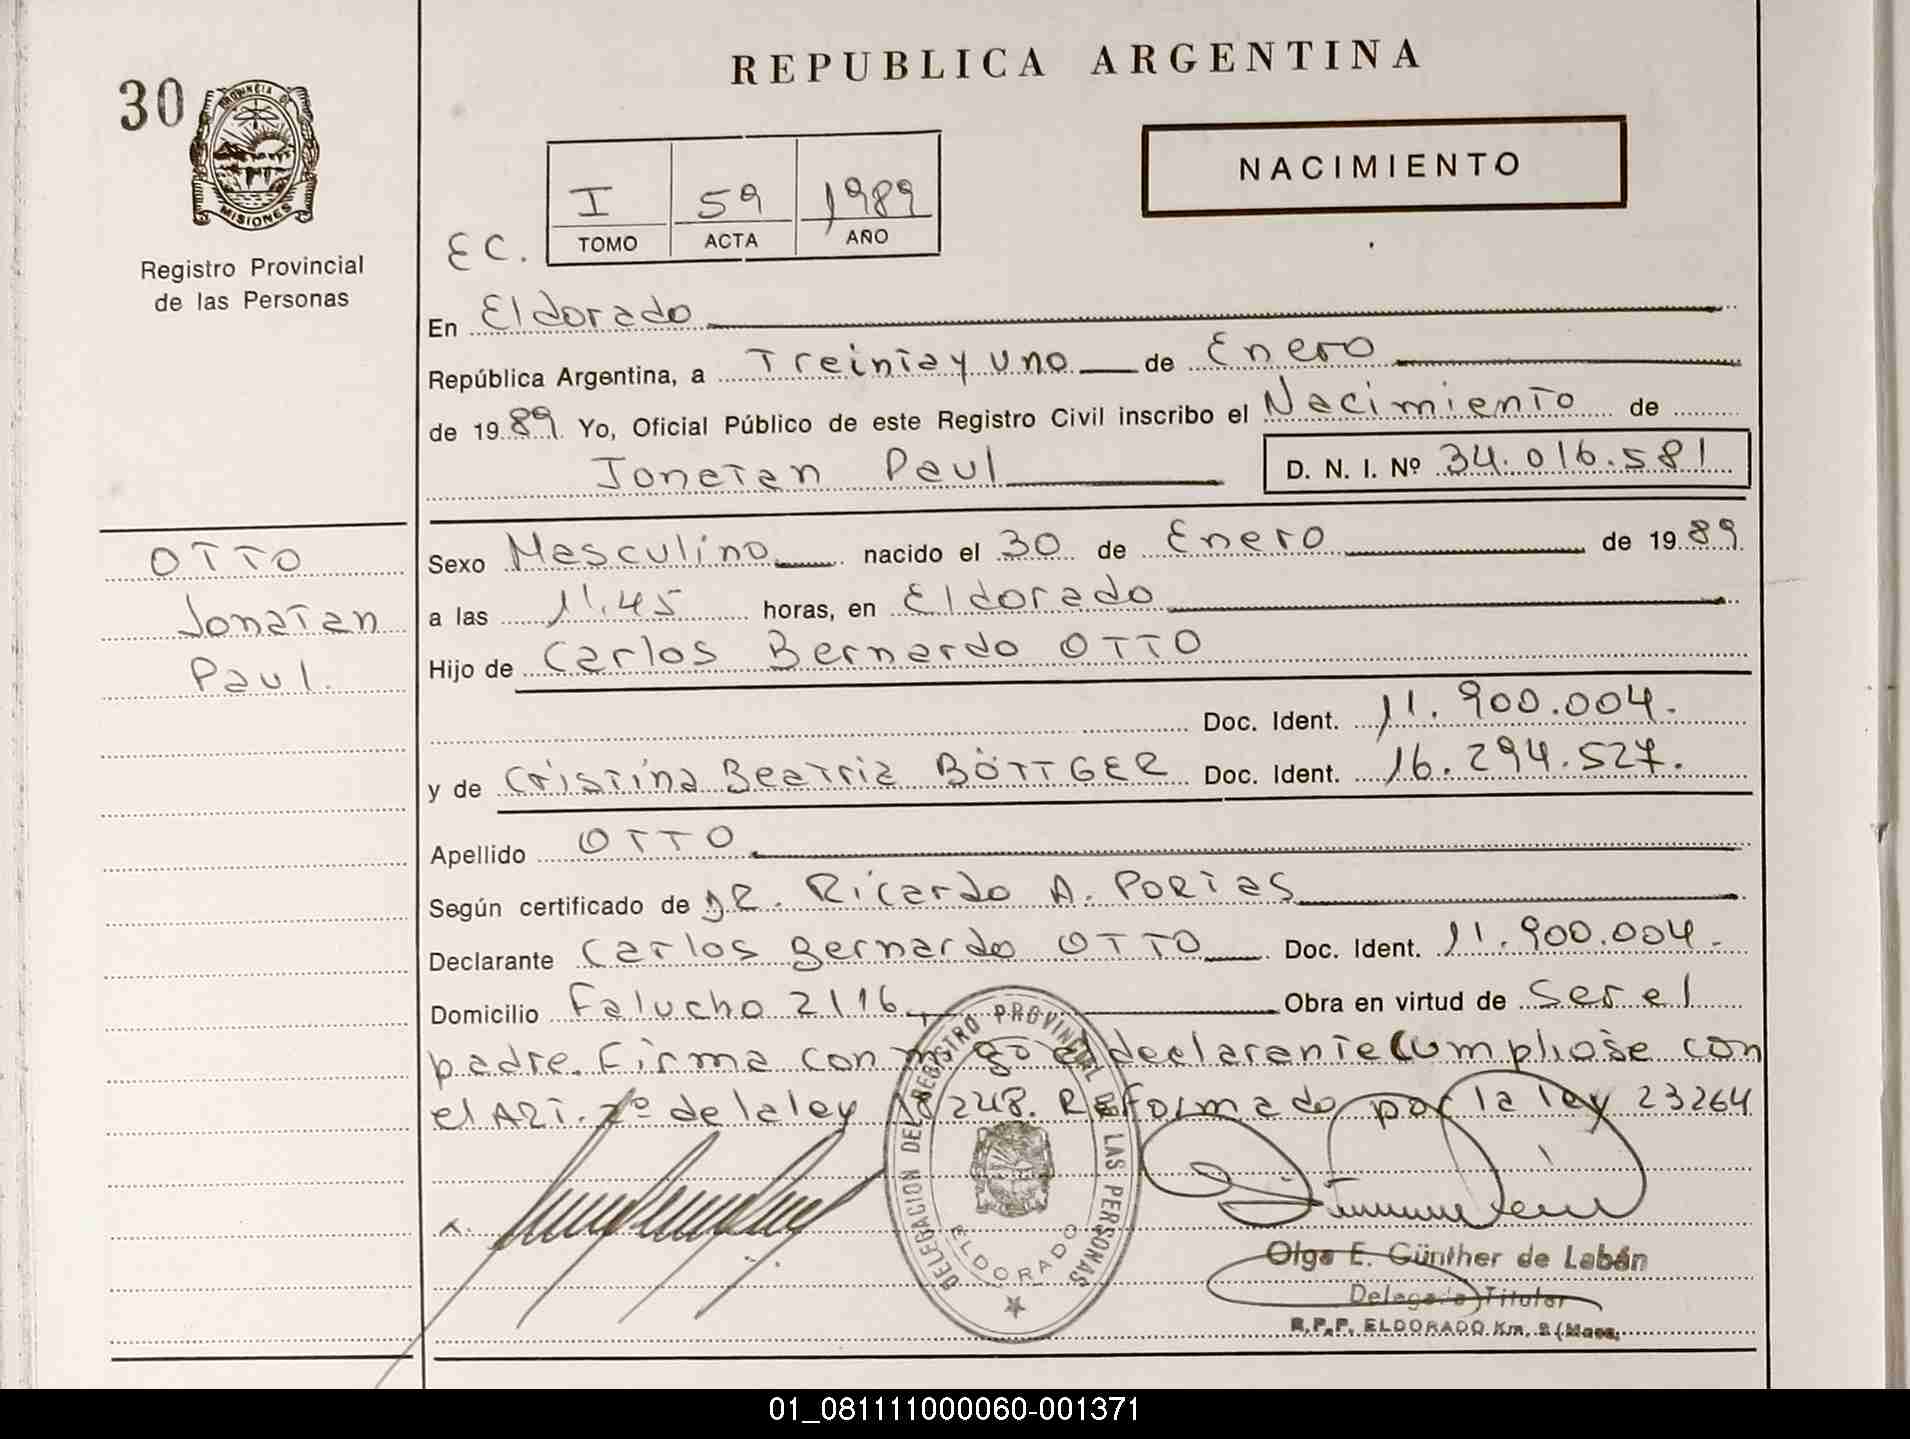 REPUBLICA ARGENTINA
30
PROVINCIA DE
MISIONES
Registro Provincial
de las Personas
NACIMIENTO
I 59 1989
TOMO ACTA AÑO
EC.
En Eldorado
República Argentina, a Treinta y uno de Enero
de 1989 Yo, Oficial Público de este Registro Civil inscribo el Nacimiento de
Jonatan Paul
D. N. I. Nº 34.016.581
OTTO
Jonatan
Paul.
Sexo Masculino nacido el 30 de Enero de 1989
a las 11,45 horas, en Eldorado
Hijo de Carlos Bernardo OTTO
Doc. Ident. 11.900.004.
y de Cristina Beatriz BÖTTGER Doc. Ident. 16.294.527.
Apellido OTTO
Según certificado de DR. Ricardo A. PORTAS
Declarante Carlos Bernardo OTTO Doc. Ident. 11.900.004.
Domicilio Falucho 2116 Obra en virtud de ser el
padre. Firma conmigo el declarante Cumplióse con
el ART. 2º de la ley 18248. Reformado por la ley 23264
DELEGACION DEL REGISTRO PROVINCIAL DE LAS PERSONAS
ELDORADO
x.
Olga E. Günther de Labán
Delegada Titular
R.P.P. ELDORADO Km.
01_081111000060-001371